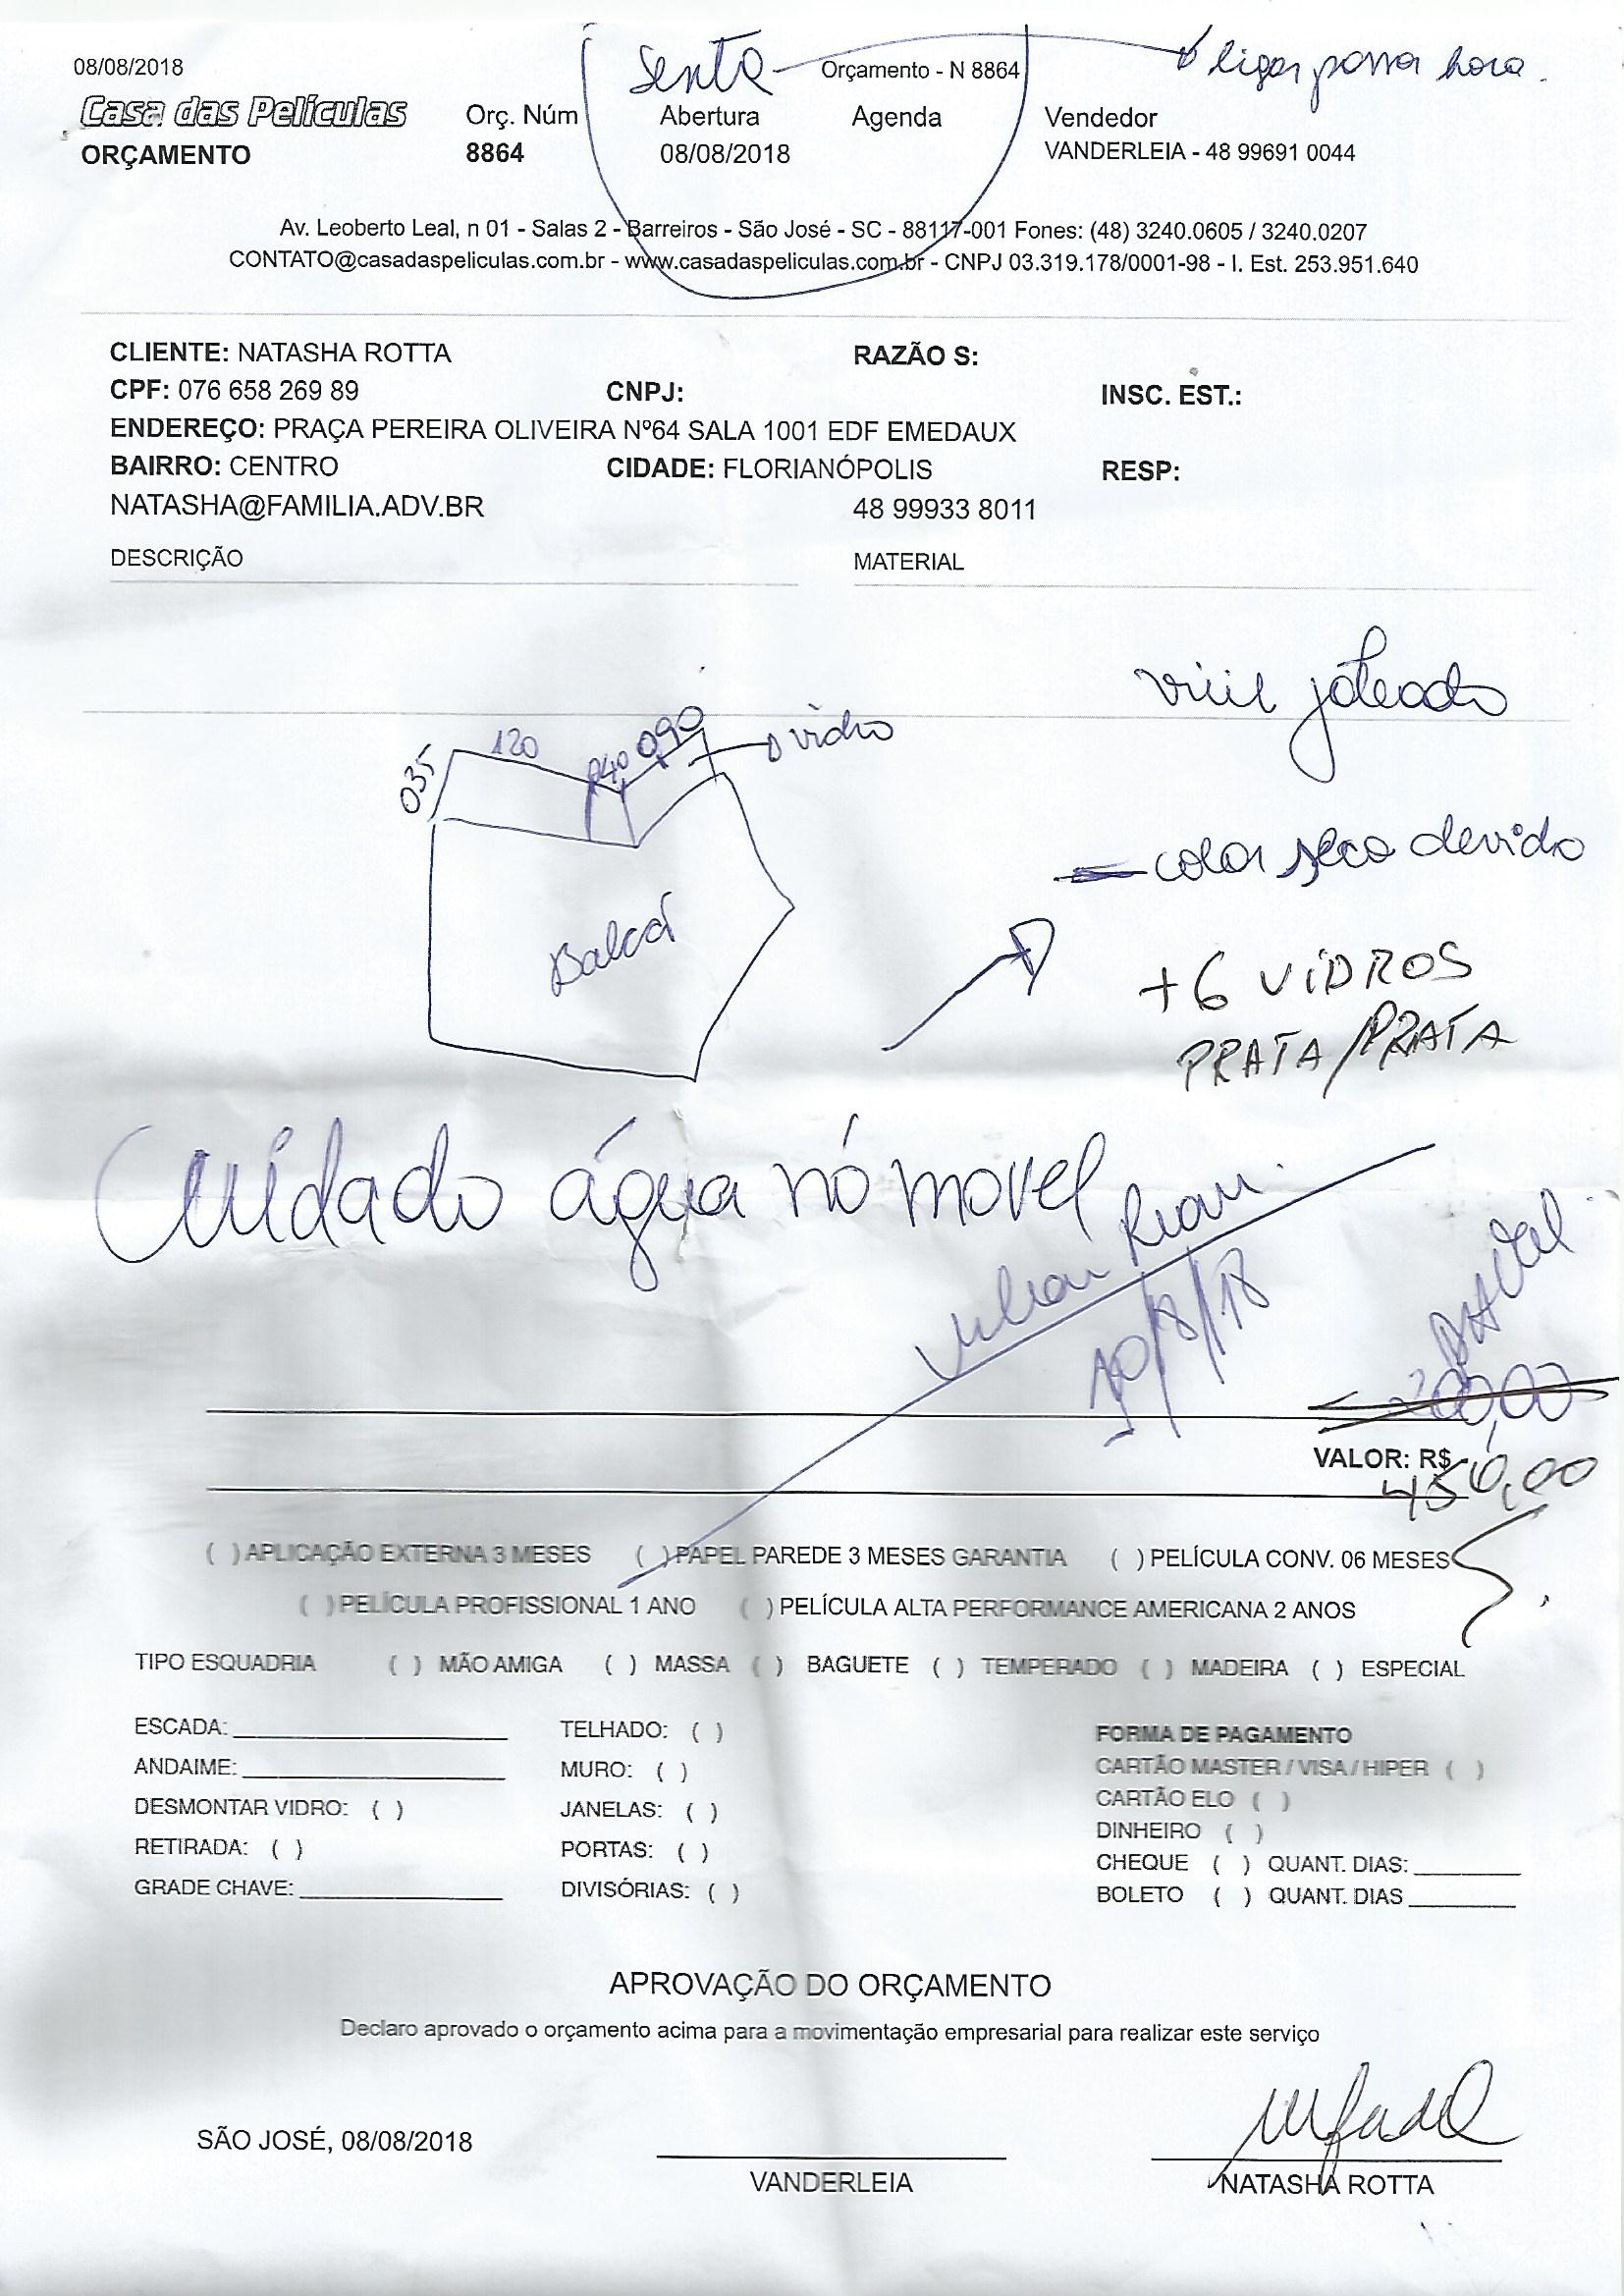 08/08/2018
Sexta
Orçamento - N 8864
ligar hora.
Casa das Películas
Orç. Núm
Abertura
Agenda
Vendedor
ORÇAMENTO
8864
08/08/2018
VANDERLEIA - 48 99691 0044
Av. Leoberto Leal, n 01 - Salas 2 - Barreiros - São José - SC - 88117-001 Fones: (48) 3240.0605 / 3240.0207
CONTATO@casadaspeliculas.com.br - www.casadaspeliculas.com.br - CNPJ 03.319.178/0001-98 - I. Est. 253.951.640
CLIENTE: NATASHA ROTTA
RAZÃO S:
CPF: 076 658 269 89
CNPJ:
INSC. EST.:
ENDEREÇO: PRAÇA PEREIRA OLIVEIRA Nº64 SALA 1001 EDF EMEDAUX
BAIRRO: CENTRO
CIDADE: FLORIANÓPOLIS
RESP:
NATASHA@FAMILIA.ADV.BR
48 99933 8011
DESCRIÇÃO
MATERIAL
jateado
035
120
040
0,90
vidro
Balcã
color seco devido
+6 VIDROS
PRATA/PRATA
Cuidado água nó movel
10/8/18
200,00
VALOR: R$
450,00
( ) APLICAÇÃO EXTERNA 3 MESES ( ) PAPEL PAREDE 3 MESES GARANTIA ( ) PELÍCULA CONV. 06 MESES
( ) PELÍCULA PROFISSIONAL 1 ANO ( ) PELÍCULA ALTA PERFORMANCE AMERICANA 2 ANOS
TIPO ESQUADRIA ( ) MÃO AMIGA ( ) MASSA ( ) BAGUETE ( ) TEMPERADO ( ) MADEIRA ( ) ESPECIAL
ESCADA:
ANDAIME:
DESMONTAR VIDRO: ( )
RETIRADA: ( )
GRADE CHAVE:
TELHADO: ( )
MURO: ( )
JANELAS: ( )
PORTAS: ( )
DIVISÓRIAS: ( )
FORMA DE PAGAMENTO
CARTÃO MASTER / VISA / HIPER ( )
CARTÃO ELO ( )
DINHEIRO ( )
CHEQUE ( ) QUANT. DIAS:
BOLETO ( ) QUANT. DIAS
APROVAÇÃO DO ORÇAMENTO
Declaro aprovado o orçamento acima para a movimentação empresarial para realizar este serviço
SÃO JOSÉ, 08/08/2018
VANDERLEIA
NATASHA ROTTA